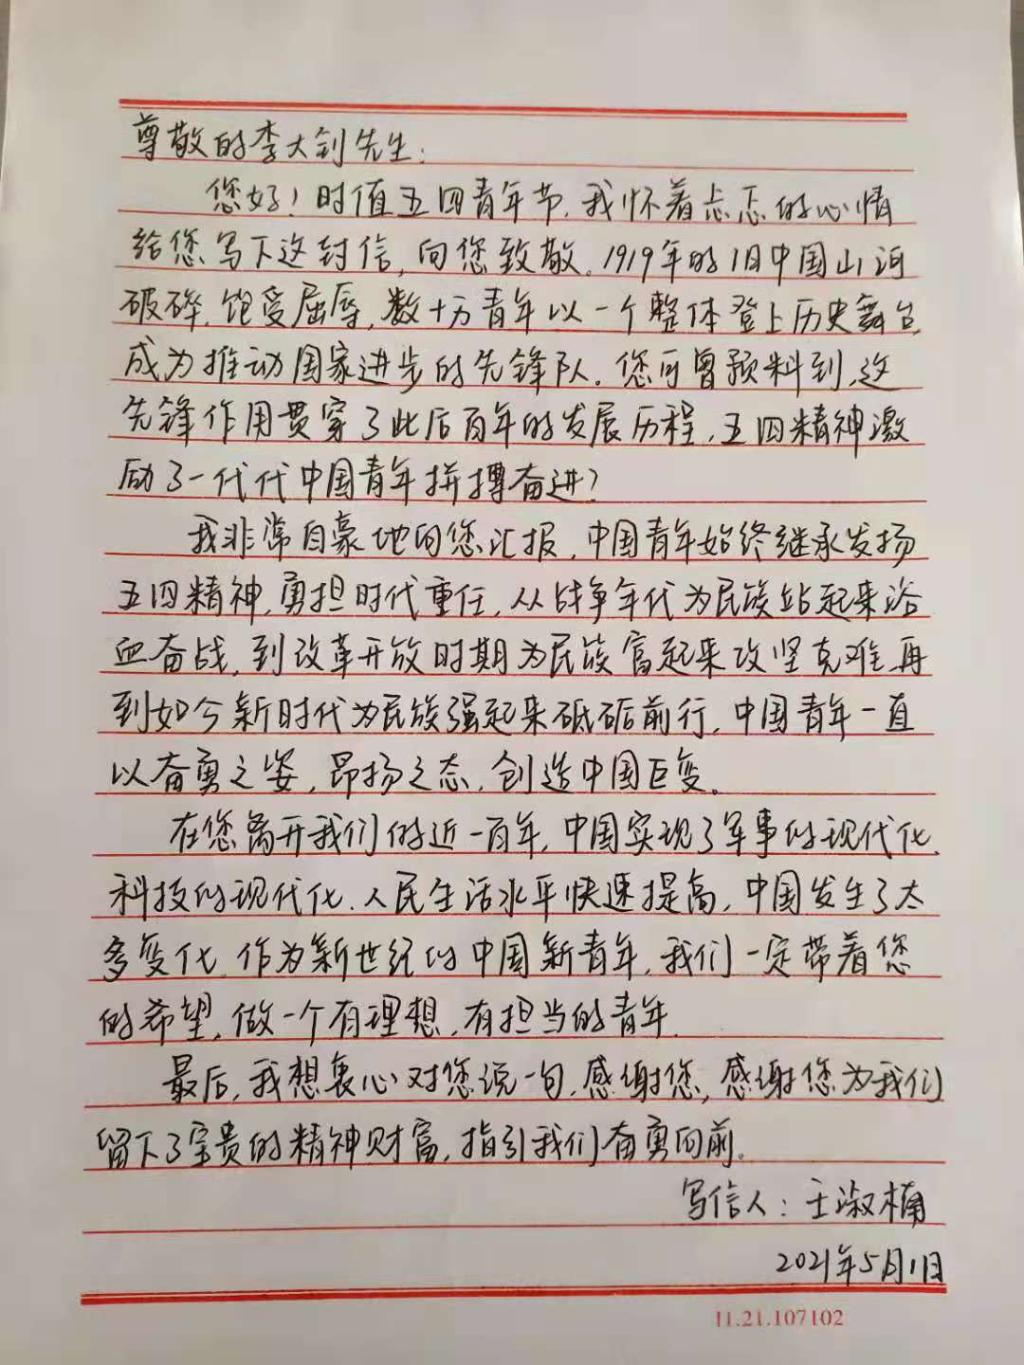 尊敬的李大钊先生:
您好!时值五四青年节,我怀着忐忑的心情
给您写下这封信,向您致敬。1919年的旧中国山河
破碎,饱受屈辱,数十万青年以一个整体登上历史舞台,
成为推动国家进步的先锋队。您可曾预料到,这
先锋作用贯穿了此后百年的发展历程,五四精神激
励了一代代中国青年拼搏奋进?
我非常自豪地向您汇报,中国青年始终继承发扬
五四精神,勇担时代重任,从战争年代为民族站起来浴
血奋战,到改革开放时期为民族富起来攻坚克难,再
到如今新时代为民族强起来砥砺前行,中国青年一直
以奋勇之姿,昂扬之态,创造中国巨变。
在您离开我们的近一百年,中国实现了军事的现代化,
科技的现代化、人民生活水平快速提高,中国发生了太
多变化,作为新世纪的中国新青年,我们一定带着您
的希望,做一个有理想,有担当的青年.
最后,我想衷心对您说一句,感谢您,感谢您为我们
留下了宝贵的精神财富,指引我们奋勇向前。
写信人:王淑楠
2021年5月1日
11.21.107102